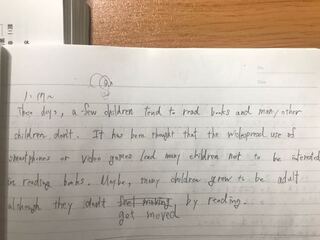 These days, a few children tend to read books and many other
children don't. It has been thought that the widespread use of
smartphones or video games lead many children not to be interested
in reading books. Maybe, many children grew to be adult
although they don't by reading.
get moved